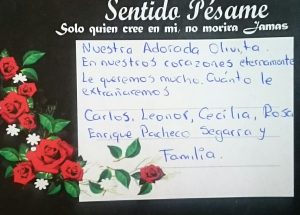 Sentido Pésame
Solo quien cree en mi, no morira Jamas
Nuestra Adorada Olivita.
En nuestros corazones eternamente
Le queremos mucho. Cuánto le
extrañaremos
Carlos, Leonor, Cecilia, Rosa
Enrique Pacheco Segarra y
Familia.